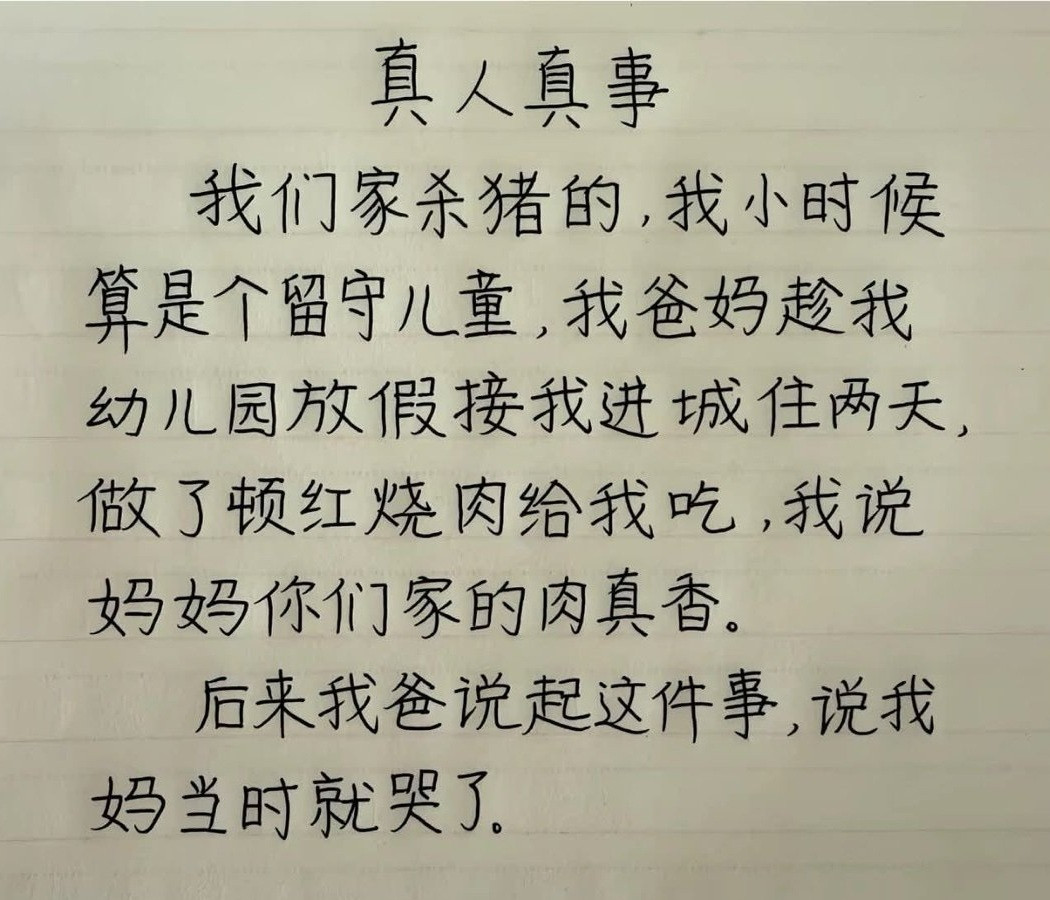 真人真事
我们家杀猪的，我小时候
算是个留守儿童，我爸妈趁我
幼儿园放假接我进城住两天，
做了顿红烧肉给我吃，我说
妈妈你们家的肉真香。
后来我爸说起这件事，说我
妈当时就哭了。